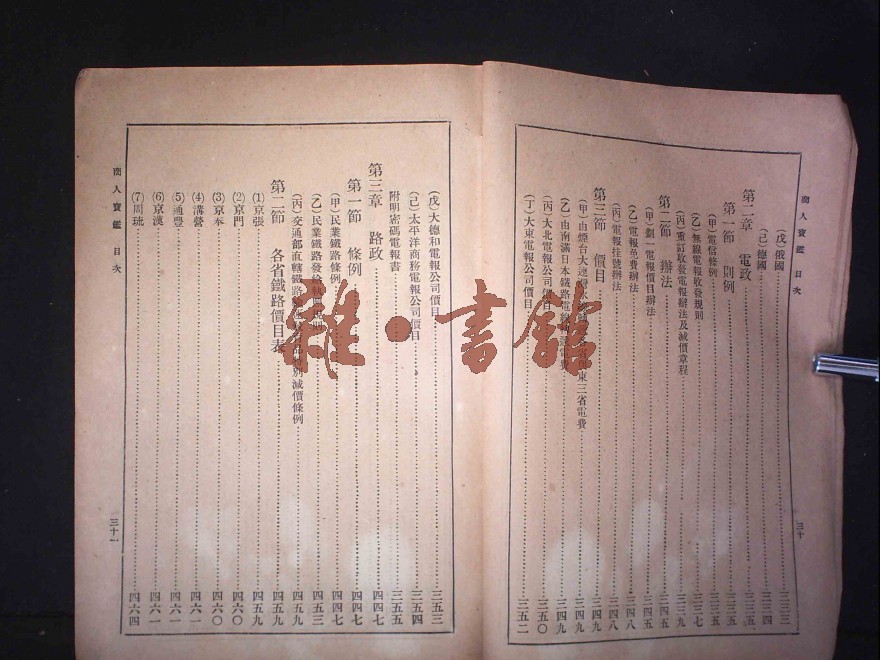 商人寶鑑 目次 三十
(戊)俄國 三三三
(己)德國 三三四
第二章 電政 三三五
第一節 則例 三三五
(甲)電信條例 三三五
(乙)無線電報收發規則 三三七
(丙)重訂收發電報辦法及減價章程 三三九
第二節 辦法 三四五
(甲)劃一電報價目辦法 三四五
(乙)電報免費辦法 三四八
(丙)電報挂號辦法 三四八
第三節 價目 三四九
(甲)由煙台大連 東三省電費 三四九
(乙)由南滿日本鐵路電 三四九
(丙)大北電報公司價目 三五〇
(丁)大東電報公司價目 三五二
(戊)大德和電報公司價目 三五三
(己)太平洋商務電報公司價目 三五四
附明密碼電報書 三五五
第三章 路政 四四七
第一節 條例 四四七
(甲)民業鐵路條例 四四七
(乙)民業鐵路發給執照規則 四五三
(丙)交通部直轄鐵路 別減價條例 四五九
第二節 各省鐵路價目表 四五九
(1)京張 四五九
(2)京門 四六〇
(3)京奉 四六〇
(4)溝營 四六一
(5)通豐 四六一
(6)京漢 四六一
(7)周琉 四六四
商人寶鑑 目次 三十一
雜·書館